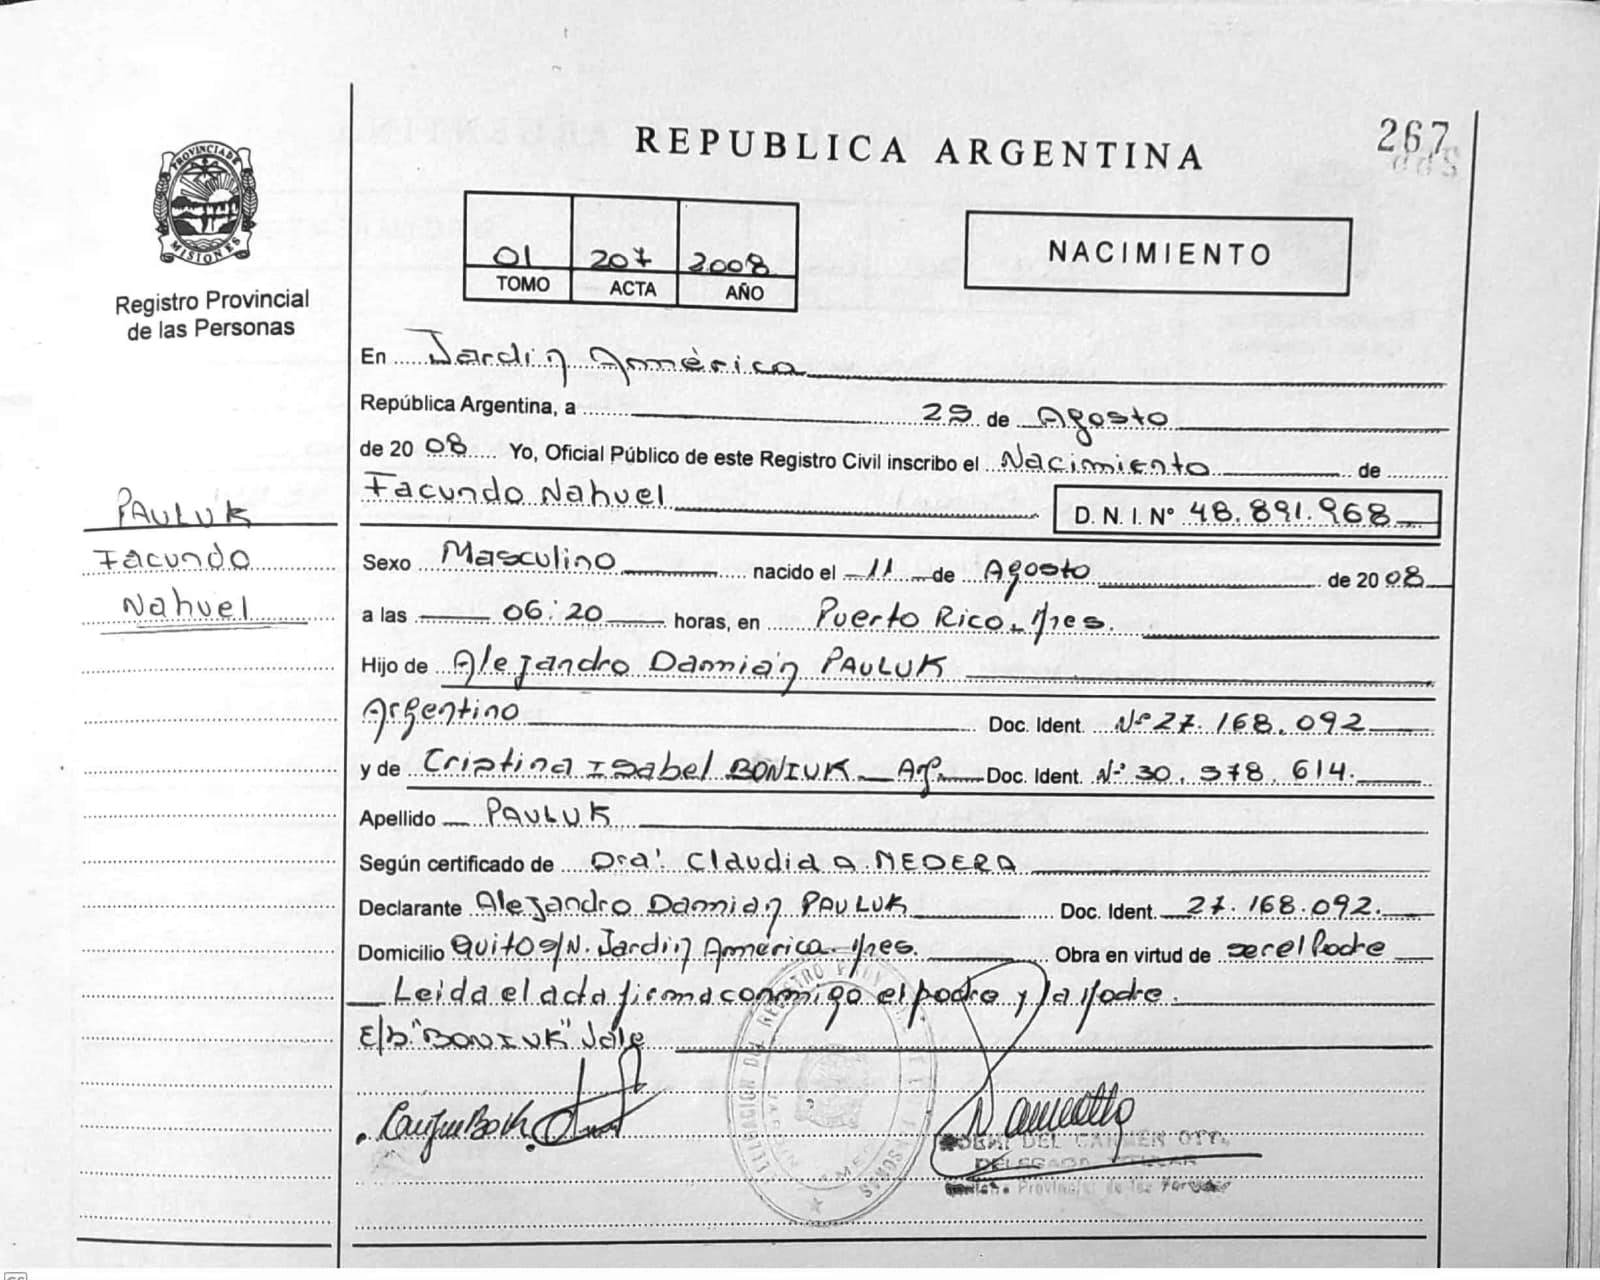 267
REPUBLICA ARGENTINA
PROVINCIA DE
MISIONES
Registro Provincial
de las Personas
01 207 2008
TOMO ACTA AÑO
NACIMIENTO
En Jardin América
República Argentina, a 25 de Agosto
de 2008 Yo, Oficial Público de este Registro Civil inscribo el Nacimiento de
Facundo Nahuel D. N. I. N° 48.891.968
PAULUK
Facundo
Nahuel
Sexo Masculino nacido el 11 de Agosto de 2008
a las 06:20 horas, en Puerto Rico. Mnes.
Hijo de Alejandro Damián PAULUK
Argentino Doc. Ident. Nº 27.168.092
y de Cristina Isabel BONIUK Arg. Doc. Ident. Nº 30.578.614.
Apellido PAULUK
Según certificado de Dra. Claudia A. MEDERA
Declarante Alejandro Damián PAULUK Doc. Ident. 27.168.092.
Domicilio Quito s/N. Jardin América. Mnes. Obra en virtud de ser el Padre
Leida el acta firma conmigo el padre y la Madre.
E/b. "BONIUK" Vale
DEL CARMEN OTT
DELEGADA TITULAR
Provincial de las Personas